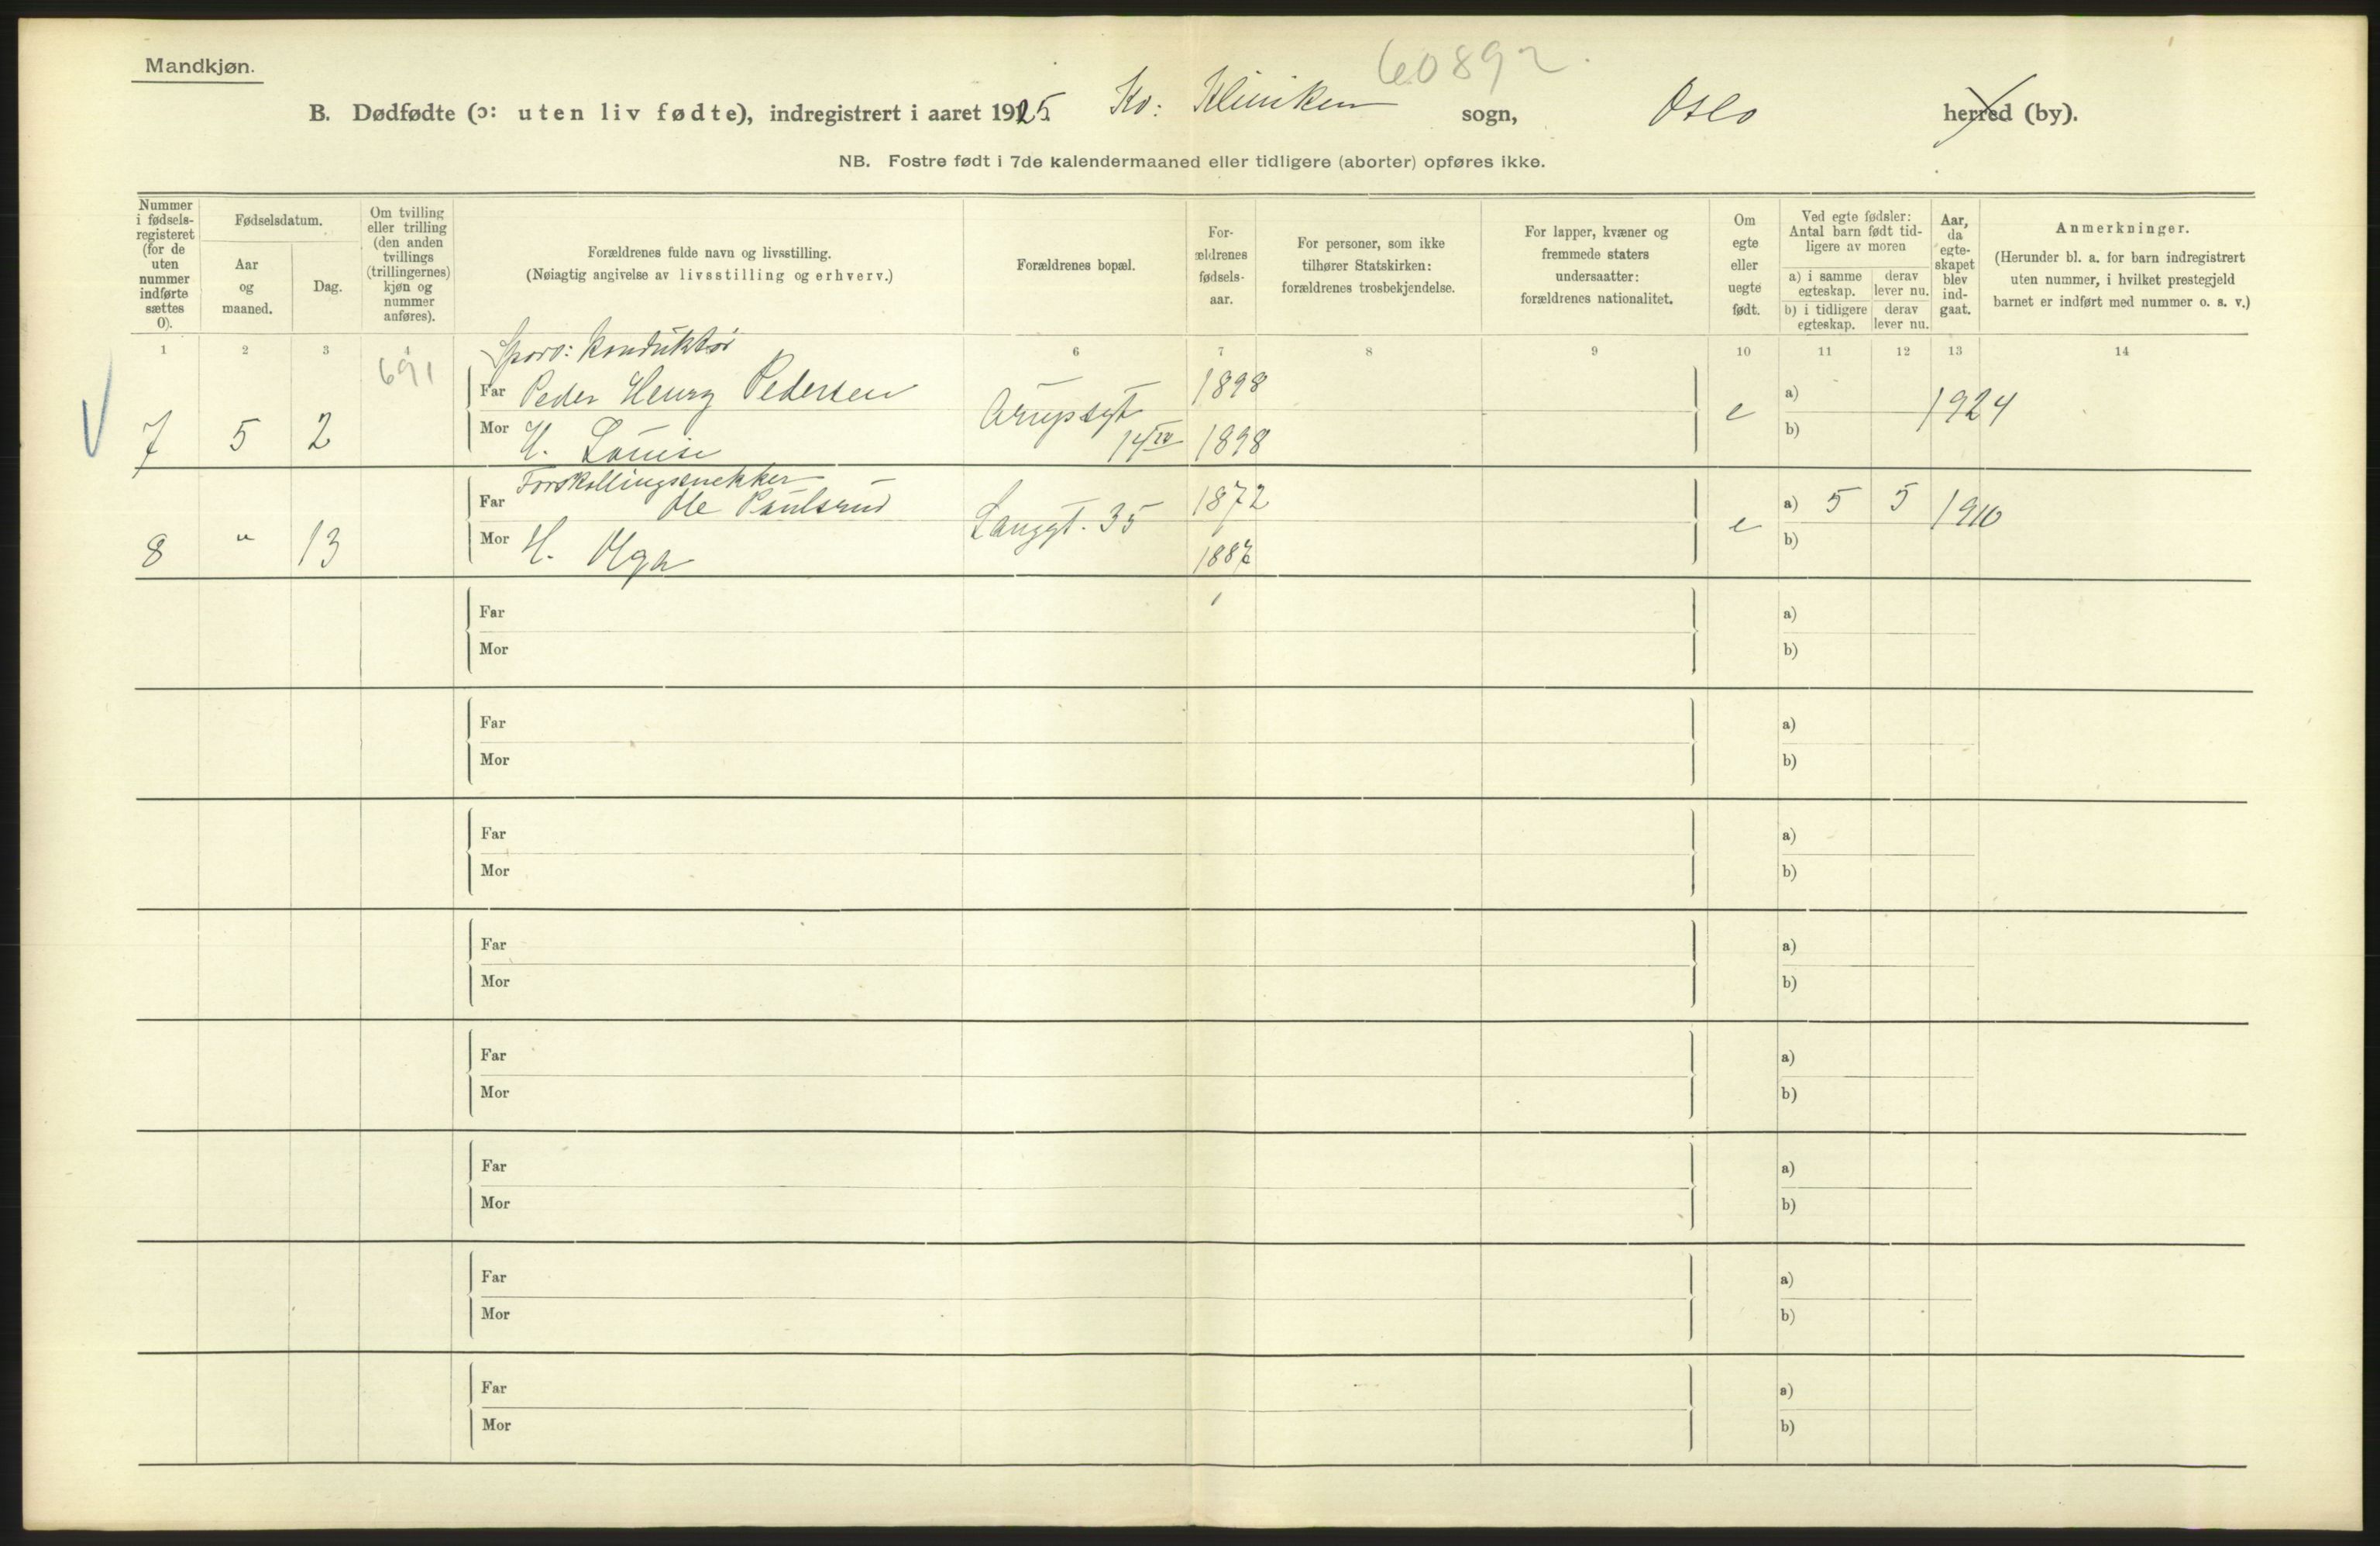 Mandkjøn.
60892.
B. Dødfødte (ɔ: uten liv fødte), indregistrert i aaret 1925. Kv: Kliniken sogn, Oslo herred (by).
NB. Fostre født i 7de kalendermaaned eller tidligere (aborter) opføres ikke.
Nummer i fødsels-registeret (for de uten nummer indførte sættes 0).
Fødselsdatum.
Aar og maaned.
Dag.
Om tvilling eller trilling (den anden tvillings (trillingernes) kjøn og nummer anføres).
Forældrenes fulde navn og livsstilling.
(Nøiagtig angivelse av livsstilling og erhverv.)
Forældrenes bopæl.
For-ældrenes fødsels-aar.
For personer, som ikke tilhører Statskirken: forældrenes trosbekjendelse.
For lapper, kvæner og fremmede staters undersaatter: forældrenes nationalitet.
Om egte eller uegte født.
Ved egte fødsler: Antal barn født tid-ligere av moren
a) i samme egteskap. derav lever nu.
b) i tidligere egteskap. derav lever nu.
Aar, da egte-skapet blev ind-gaat.
Anmerkninger.
(Herunder bl. a. for barn indregistrert uten nummer, i hvilket prestegjeld barnet er indført med nummer o. s. v.)
1 2 3 4 6 7 8 9 10 11 12 13 14
691
Sporv: konduktør
Far Peder Henry Pedersen 1898 a)
7 5 2 Arupsgt 14 IV e 1924
Mor H. Louise 1898 b)
Forskallingssnekker
Far Ole Paulsrud 1872 a) 5 5 1910
8 " 13 Langgt. 35 e
Mor H. Olga 1887 b)
Far a)
Mor b)
Far a)
Mor b)
Far a)
Mor b)
Far a)
Mor b)
Far a)
Mor b)
Far a)
Mor b)
Far a)
Mor b)
Far a)
Mor b)